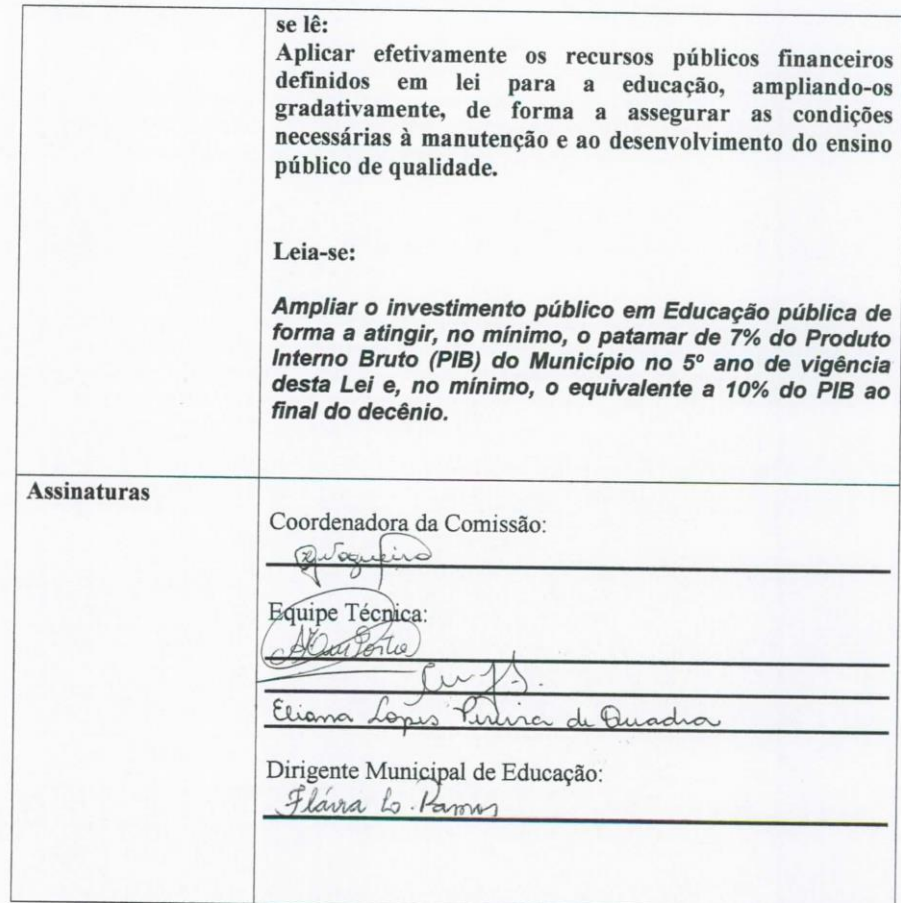 se lê:
Aplicar efetivamente os recursos públicos financeiros
definidos em lei para a educação, ampliando-os
gradativamente, de forma a assegurar as condições
necessárias à manutenção e ao desenvolvimento do ensino
público de qualidade.
Leia-se:
Ampliar o investimento público em Educação pública de
forma a atingir, no mínimo, o patamar de 7% do Produto
Interno Bruto (PIB) do Município no 5º ano de vigência
desta Lei e, no mínimo, o equivalente a 10% do PIB ao
final do decênio.
Assinaturas
Coordenadora da Comissão:
Equipe Técnica:
Eliana Lopes Pereira de Quadra
Dirigente Municipal de Educação:
Flávia